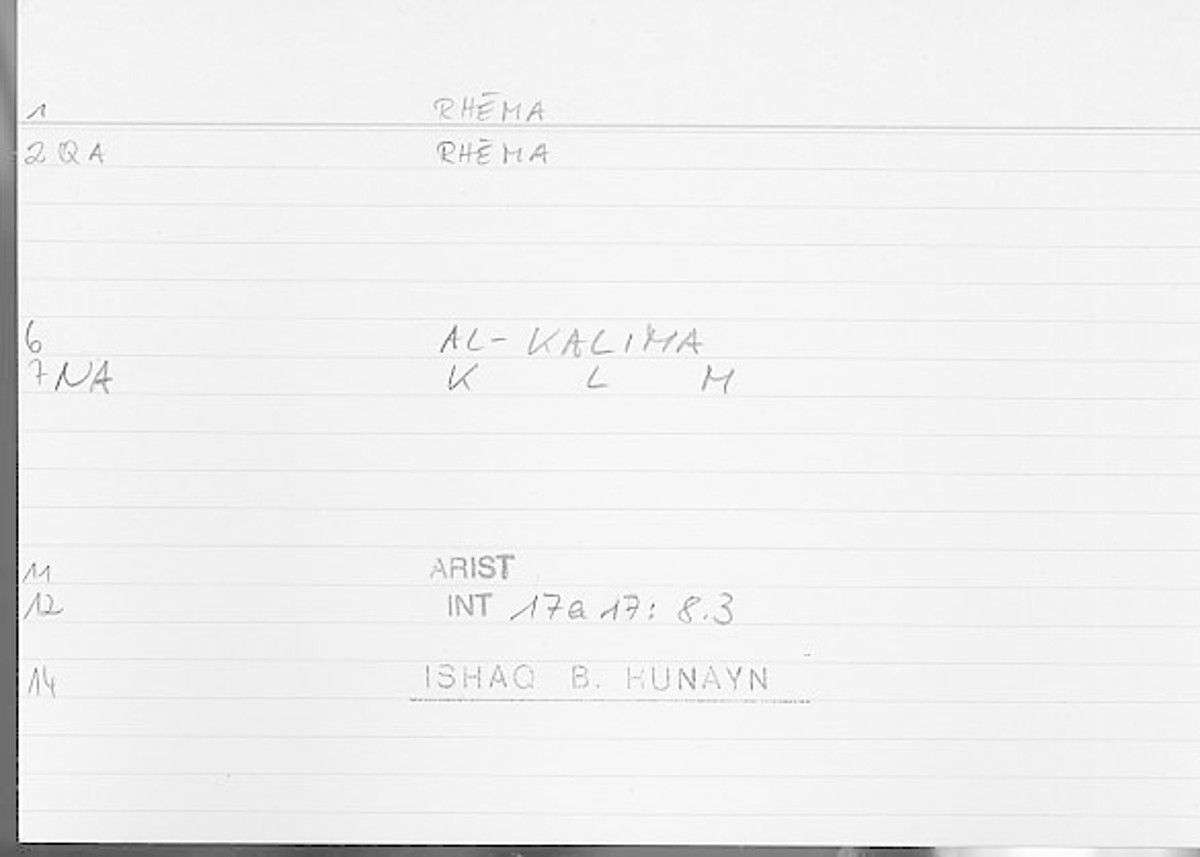 1 RHĒMA
2 QA RHĒMA
6 AL-KALIMA
7 NA K L M
11 ARIST
12 INT 17a 17: 8.3
14 ISHAQ B. HUNAYN